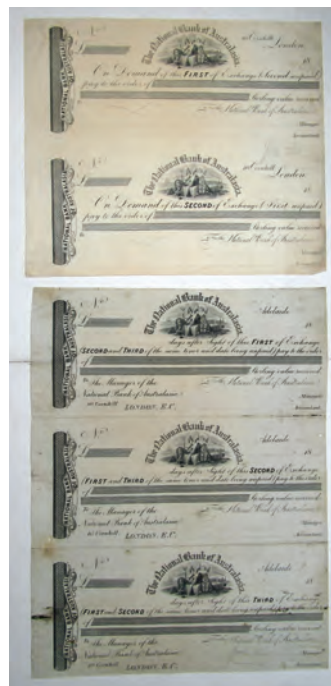 The National Bank of Australasia,
London
£ 18
On Demand of this FIRST of Exchange (Second unpaid)
pay to the order of
Sterling value received
National Bank of Australasia
Manager.
Accountant.
The National Bank of Australasia,
London
£ 18
On Demand of this SECOND of Exchange (First unpaid)
pay to the order of
Sterling value received
National Bank of Australasia
The National Bank of Australasia,
Adelaide
£ 18
days after Sight of this FIRST of Exchange
(SECOND and THIRD of the same tenor and date being unpaid) pay to the order
of Sterling value received
To The Manager of the
National Bank of Australasia
LONDON, E.C.
Manager.
Accountant.
The National Bank of Australasia,
Adelaide
£ 18
days after Sight of this SECOND of Exchange
(FIRST and THIRD of the same tenor and date being unpaid) pay to the order
of Sterling value received
To The Manager of the
National Bank of Australasia
LONDON, E.C.
Manager.
Accountant.
The National Bank of Australasia,
Adelaide
£ 18
days after Sight of this THIRD of Exchange
(FIRST and SECOND of the same tenor and date being unpaid) pay to the order
of Sterling value received
To The Manager of the
National Bank of Australasia
LONDON, E.C.